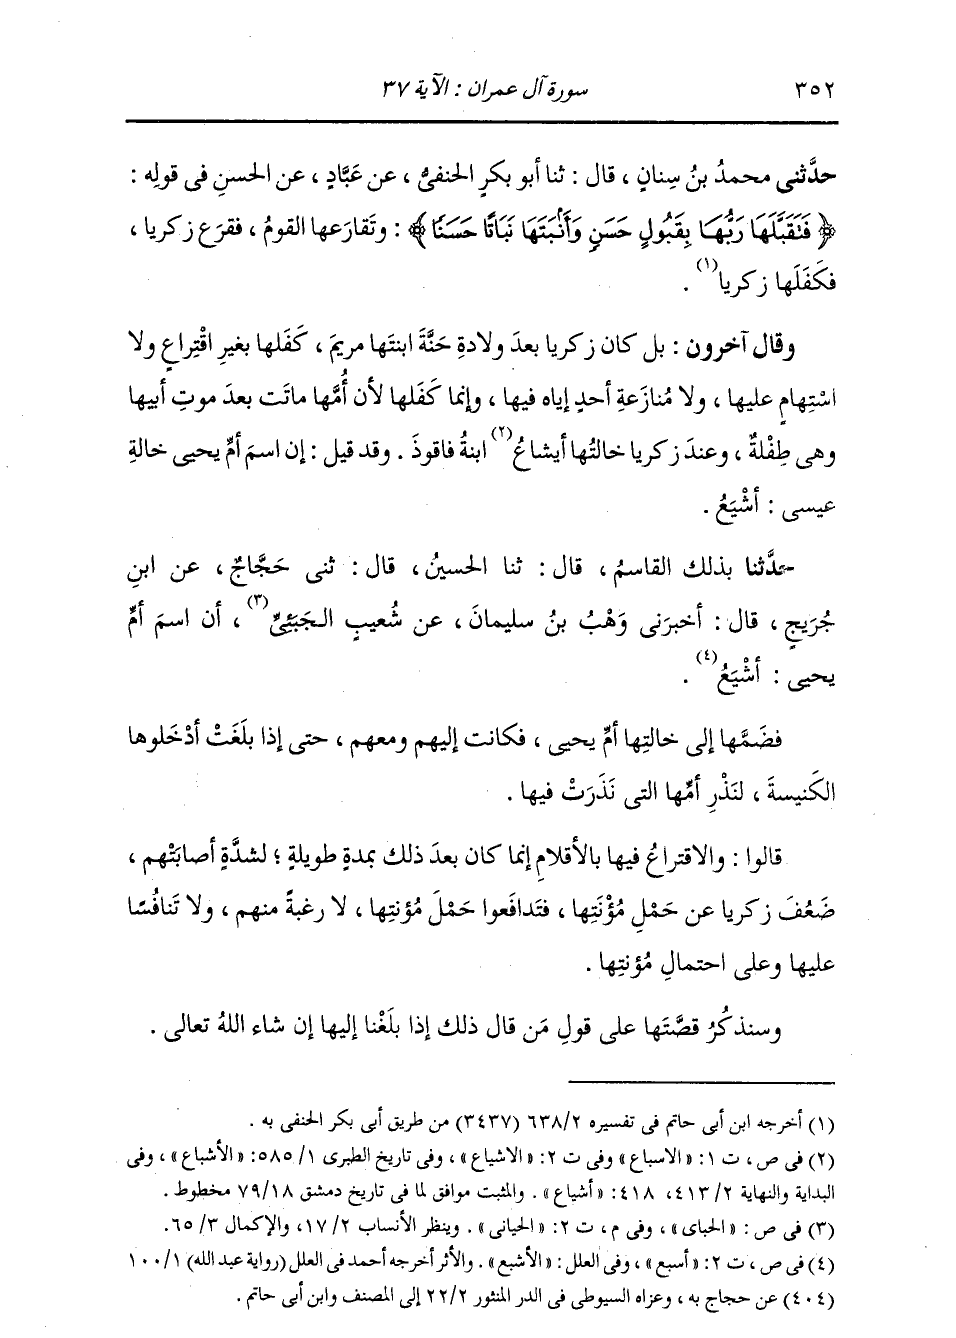 ٣٥٢ سورة آل عمران : الآية ٣٧
حدَّثنى محمدُ بنُ سِنانٍ ، قال : ثنا أبو بكرٍ الحنفىُّ ، عن عَبَّادٍ ، عن الحسنِ فى قولِه :
﴿ فَتَقَبَّلَهَا رَبُّهَا بِقَبُولٍ حَسَنٍ وَأَنْبَتَهَا نَبَاتًا حَسَنًا ﴾ : وتَقارَعها القومُ ، فقرَع زكريا ،
فكَفَلَها زكريا(١) .
وقال آخرون : بل كان زكريا بعدَ ولادةِ حَنَّةَ ابنتَها مريمَ ، كَفَلها بغيرِ اقْتِراعٍ ولا
اسْتِهامٍ عليها ، ولا مُنازَعةِ أحدٍ إياه فيها ، وإنما كَفَلها لأن أُمَّها ماتَت بعدَ موتِ أبيها
وهى طِفْلةٌ ، وعندَ زكريا خالتُها أيشاعُ(٢) ابنةُ فاقوذَ . وقد قيل : إن اسمَ أمِّ يحيى خالةِ
عيسى : أشْيَعُ .
حدَّثنا بذلك القاسمُ ، قال : ثنا الحسينُ ، قال : ثنى حَجَّاجٌ ، عن ابنِ
جُرَيجٍ ، قال : أخبرَنى وَهْبُ بنُ سليمانَ ، عن شُعيبٍ الجَبَئِىِّ(٣) ، أن اسمَ أمِّ
يحيى : أشْيَعُ(٤) .
فضَمَّها إلى خالتِها أمِّ يحيى ، فكانت إليهم ومعهم ، حتى إذا بلَغَتْ أدْخَلوها
الكَنيسةَ ، لنَذْرِ أمِّها التى نَذَرَتْ فيها .
قالوا : والاقتراعُ فيها بالأقلامِ إنما كان بعدَ ذلك بمدةٍ طويلةٍ ؛ لشدَّةٍ أصابَتْهم ،
ضَعُفَ زكريا عن حَمْلِ مُؤْنَتِها ، فتَدافَعوا حَمْلَ مُؤنتِها ، لا رغبةً منهم ، ولا تَنافُسًا
عليها وعلى احتمالِ مُؤنتِها .
وسنذكُرُ قصَّتَها على قولِ مَن قال ذلك إذا بلَغْنا إليها إن شاء اللهُ تعالى .
(١) أخرجه ابن أبى حاتم فى تفسيره ٦٣٨/٢ (٣٤٣٧) من طريق أبى بكر الحنفى به .
(٢) فى ص ، ت ١: «الاسباع» وفى ت ٢: «الاشياع» ، وفى تاريخ الطبرى ١/ ٥٨٥: «الأشباع» ، وفى
البداية والنهاية ٤١٣/٢، ٤١٨: «أشياع» . والمثبت موافق لما فى تاريخ دمشق ٧٩/١٨ مخطوط .
(٣) فى ص : «الحباى» ، وفى م ، ت ٢: «الحيانى» . وينظر الأنساب ١٧/٢، والإكمال ٣/ ٦٥.
(٤) فى ص ، ت ٢: «أسبع» ، وفى العلل : «الأشبع» . والأثر أخرجه أحمد فى العلل (رواية عبد الله) ١٠٠/١
(٤٠٤) عن حجاج به ، وعزاه السيوطى فى الدر المنثور ٢٢/٢ إلى المصنف وابن أبى حاتم .